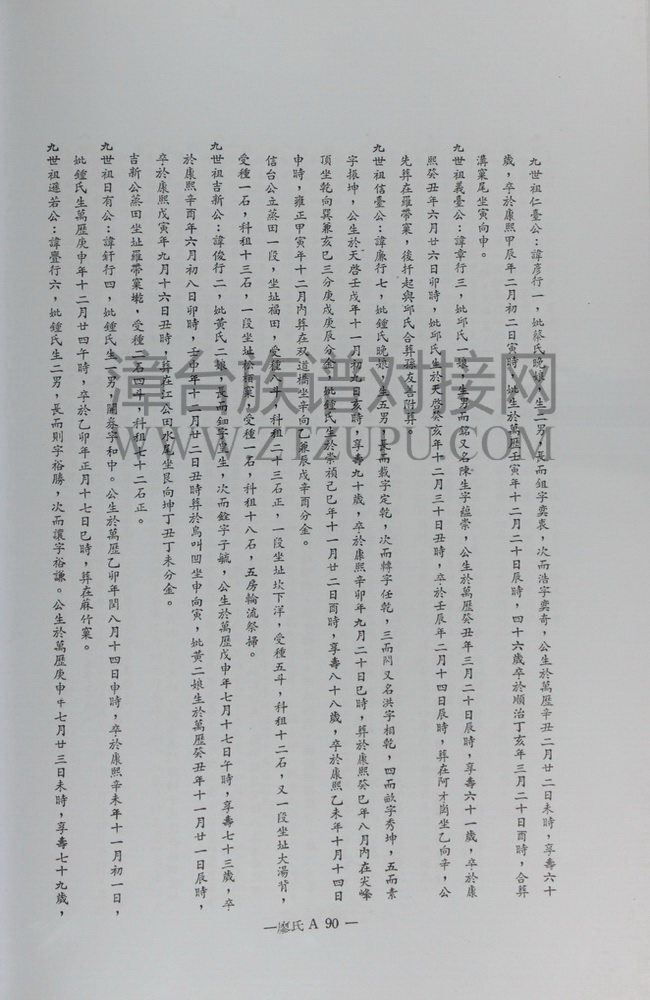 九世祖仁臺公：諱彥行一，妣蔡氏晚娘，生二男，長而鈕字奕衷，次而浩字奕奇，公生於萬歷辛丑二月廿二日未時，享壽六十
歲，卒於康熙甲辰年二月初二日寅時，妣生於萬歷壬寅年十二月二十日辰時，四十六歲卒於順治丁亥年三月二十日酉時，合葬
溝窠尾坐寅向申。
九世祖義臺公：諱章行三，妣邱氏一娘，生男而銘又名陳生字蘊崇，公生於萬歷癸丑年三月二十日辰時，享壽六十一歲，卒於康
熙癸丑年六月廿六日卯時，妣邱氏生於天啓癸亥年十二月三十日丑時，卒於壬辰年二月十四日辰時，葬在阿才崗坐乙向辛，公
先葬在羅帶窠，後扦起與邱氏合葬孫友善附葬。
九世祖信臺公：諱廉行七，妣鍾氏晚娘，生五男，長而載字定乾，次而轉字任乾，三而閃又名洪字相乾，四而畝字秀坤，五而素
字振坤，公生於天啓壬戌年十一月初九日亥時，享壽九十歲，卒於康熙辛卯年九月二十日巳時，葬於康熙癸巳年八月內在尖峰
頂坐乾向巽兼亥巳三分庚戌庚辰分金，妣鍾氏生於崇禎己巳年十一月廿二日酉時，享壽八十八歲，卒於康熙乙未年十月十四日
申時，雍正甲寅年十二月內葬在双道橋坐辛向乙兼辰戌辛酉分金。
信台公立蒸田一段，坐址福田，受種八斗，科租二十三石正，一段坐址坎下洋，受種五斗，科租十二石，又一段坐址大湯背，
受種一石，科租十三石，一段坐址松栢窠，受種一石，科租十八石，五房輪流祭掃。
九世祖吉新公：諱俊行二，妣黃氏二娘，長而鈿字坐生，次而銓字子毓，公生於萬歷戊申年七月十七日午時，享壽七十三歲，卒
於康熙辛酉年六月初八日卯時，壬申年十二月廿二日丑時葬於烏叫凹坐申向寅，妣黃二娘生於萬歷癸丑年十一月廿一日辰時，
卒於康熙戊寅年九月十六日丑時，葬在江公田水尾坐艮向坤丁丑丁未分金。
吉新公蒸田坐址羅帶窠墘，受種二石四斗，科租七十二石正。
九世祖日有公：諱釬行四，妣鍾氏生一男，開泰字和中。公生於萬歷乙卯年閏八月十四日申時，卒於康熙辛未年十一月初一日，
妣鍾氏生萬歷庚申年十二月廿四午時，卒於乙卯年正月十七日巳時，葬在蔴竹窠。
九世祖遜若公：諱豊行六，妣鍾氏生二男，長而則字裕勝，次而讓字裕謙。公生於萬歷庚申年七月廿三日未時，享壽七十九歲，
—廖氏 A 90 —
漳台族谱对接网
WWW.ZTZUPU.COM